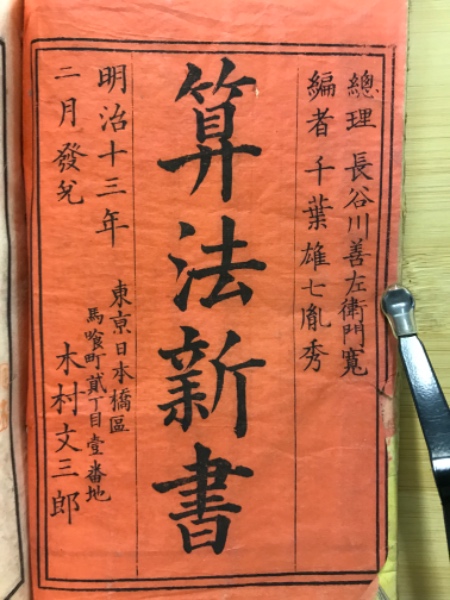 總理 長谷川善左衛門寬
編者 千葉雄七胤秀
算法新書
明治十三年
二月發兌
東京日本橋區
馬喰町貳丁目壹番地
木村文三郎